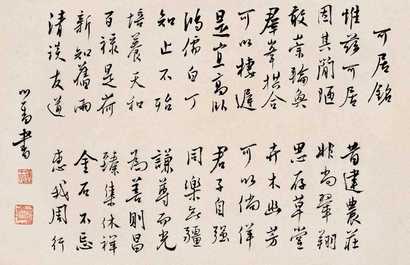 可居銘
惟茲可居 昔建農莊
因其閒陋 非尚翬翔
敢崇輪奐 思存草堂
羣峯拱合 卉木芳
可以棲遲 可以倘佯
是宜高 君子自强
鴻儒白丁 同樂無疆
知止不殆 謙尊而光
培養天和 為善則昌
百祿是荷 臻集休祥
新知舊雨 金石不忘
清談友道 惠我周行
心畬書